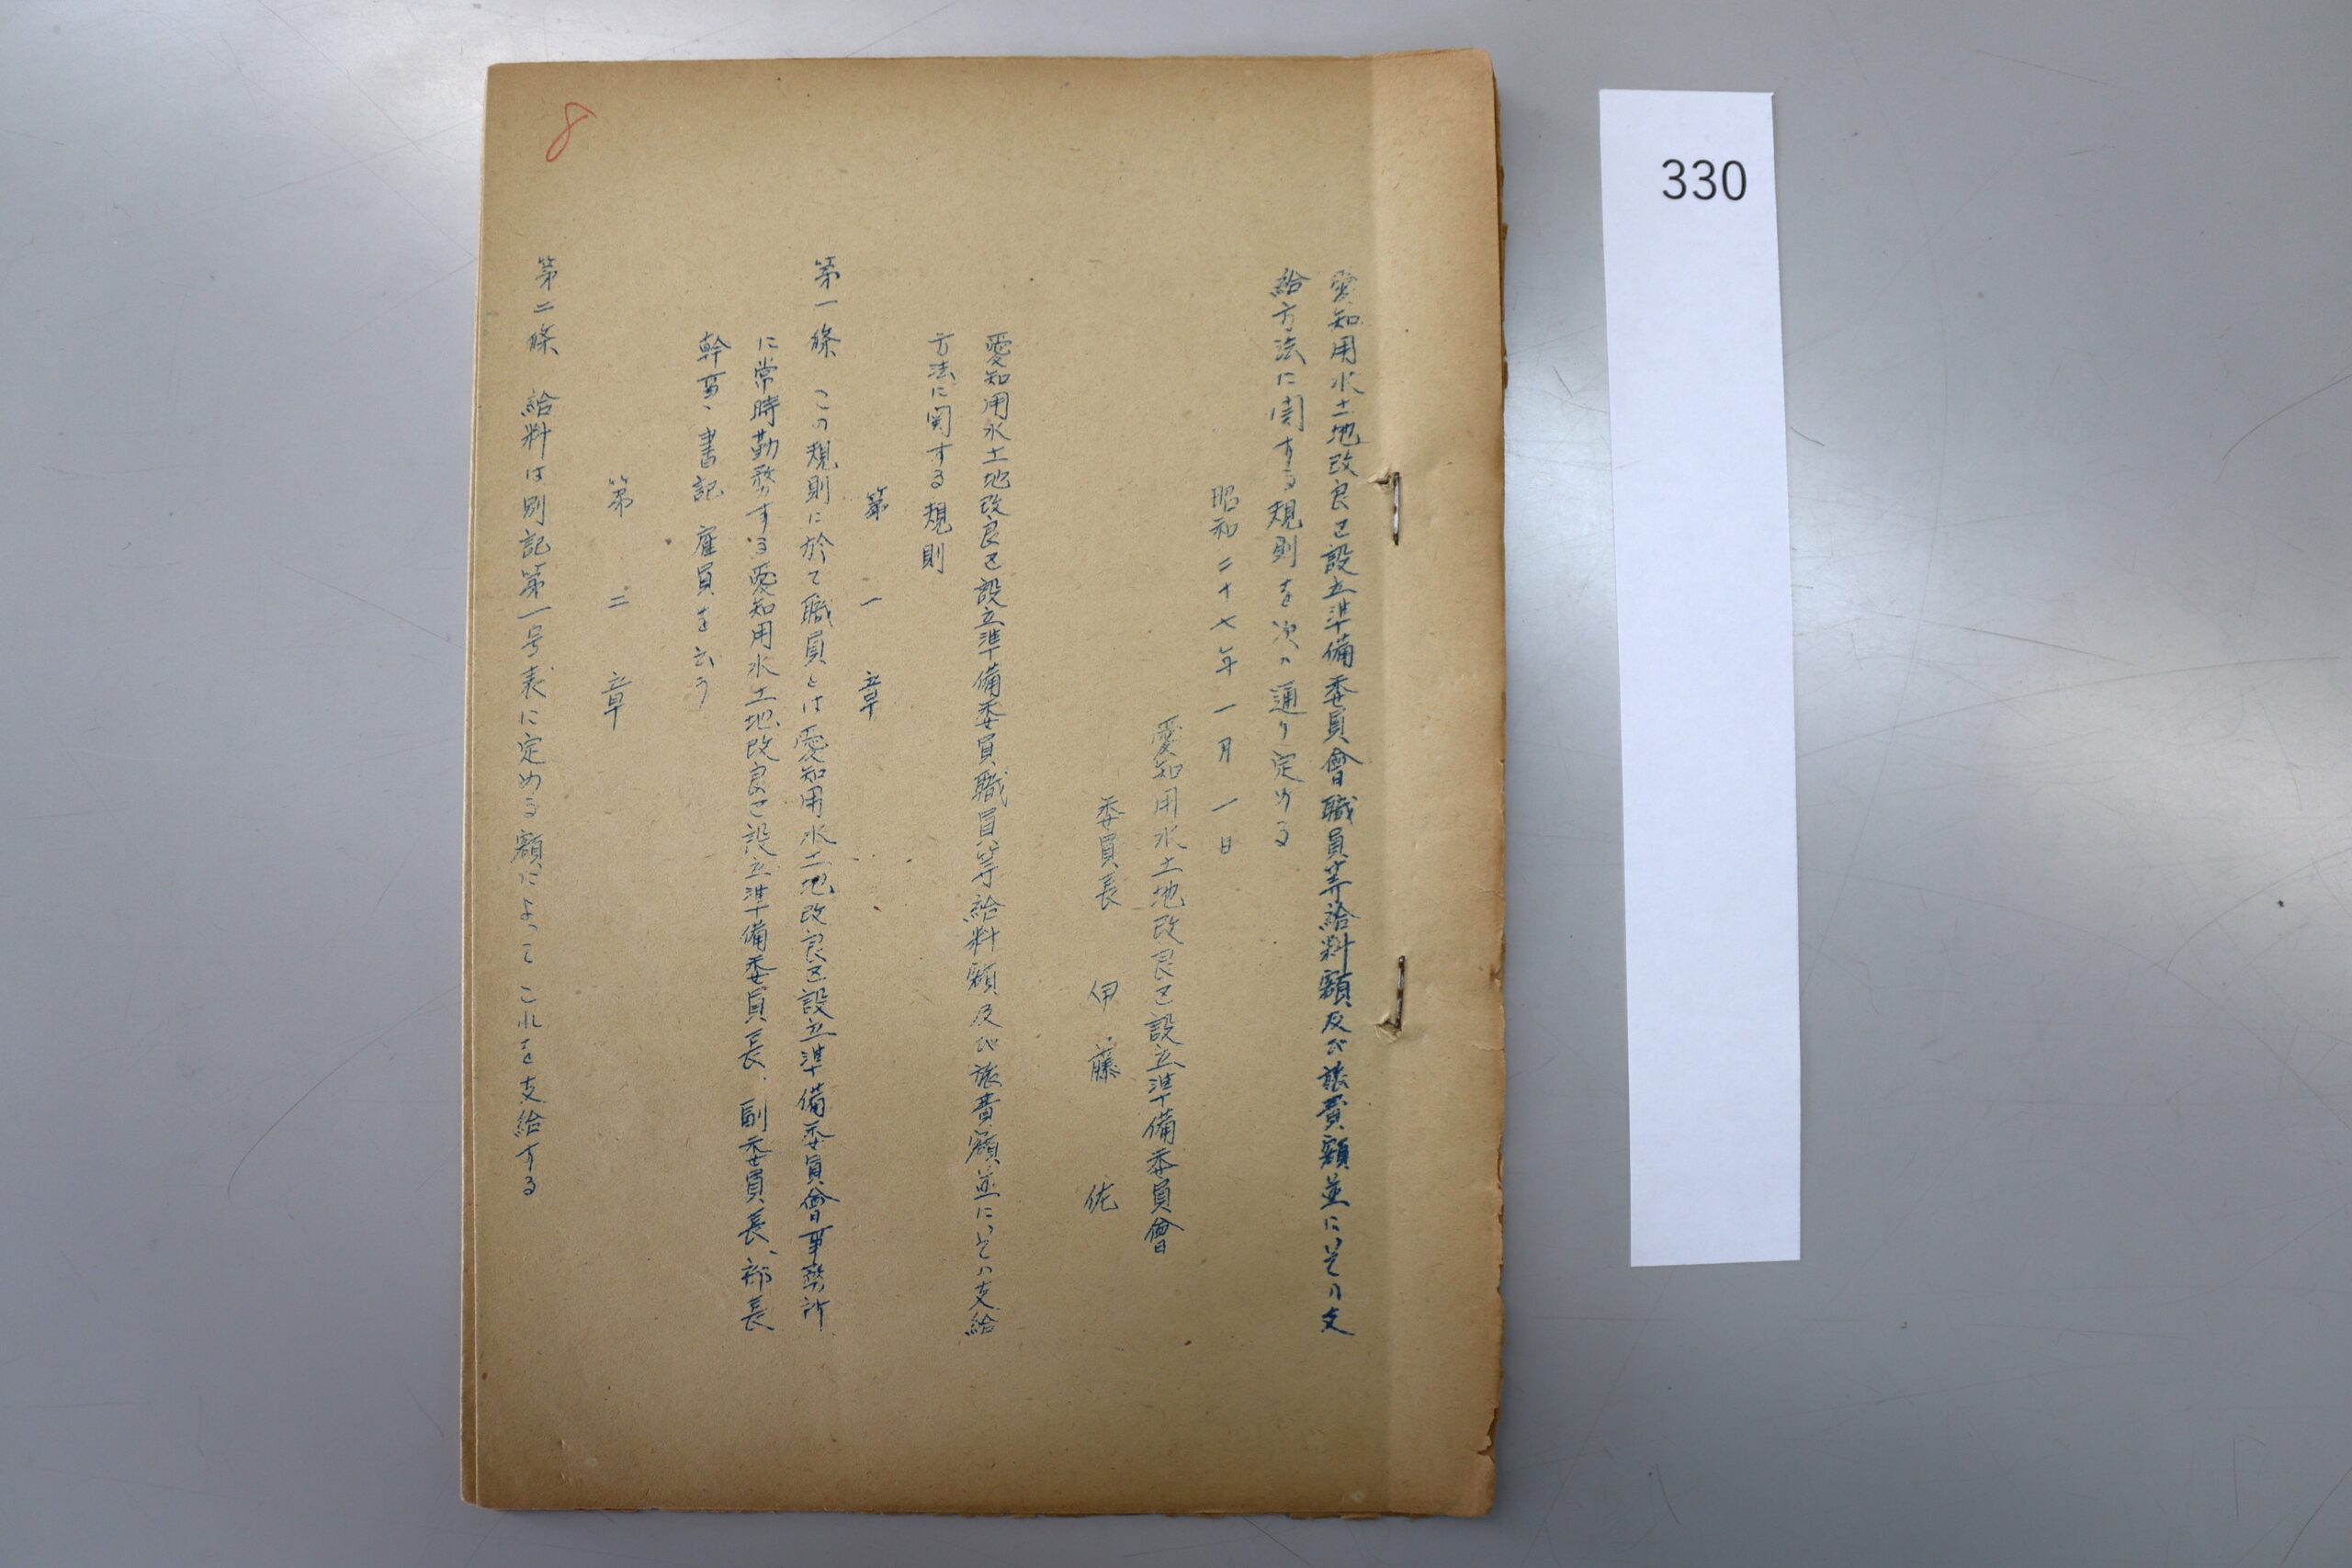 愛知用水土地改良区設立準備委員會職員等給料額及び旅費額並にその支
給方法に関する規則を次の通り定める
昭和二十七年一月一日
愛知用水土地改良区設立準備委員會
委員長 伊藤佐
愛知用水土地改良区設立準備委員職員等給料額及び旅費額並にその支給
方法に関する規則
第一章
第一條 この規則に於て職員とは愛知用水土地改良区設立準備委員會事務所
に常時勤務する愛知用水土地改良区設立準備委員長、副委員長、部長
幹事、書記 雇員を云う
第二章
第二條 給料は別記第一号表に定める額によってこれを支給する
8
330